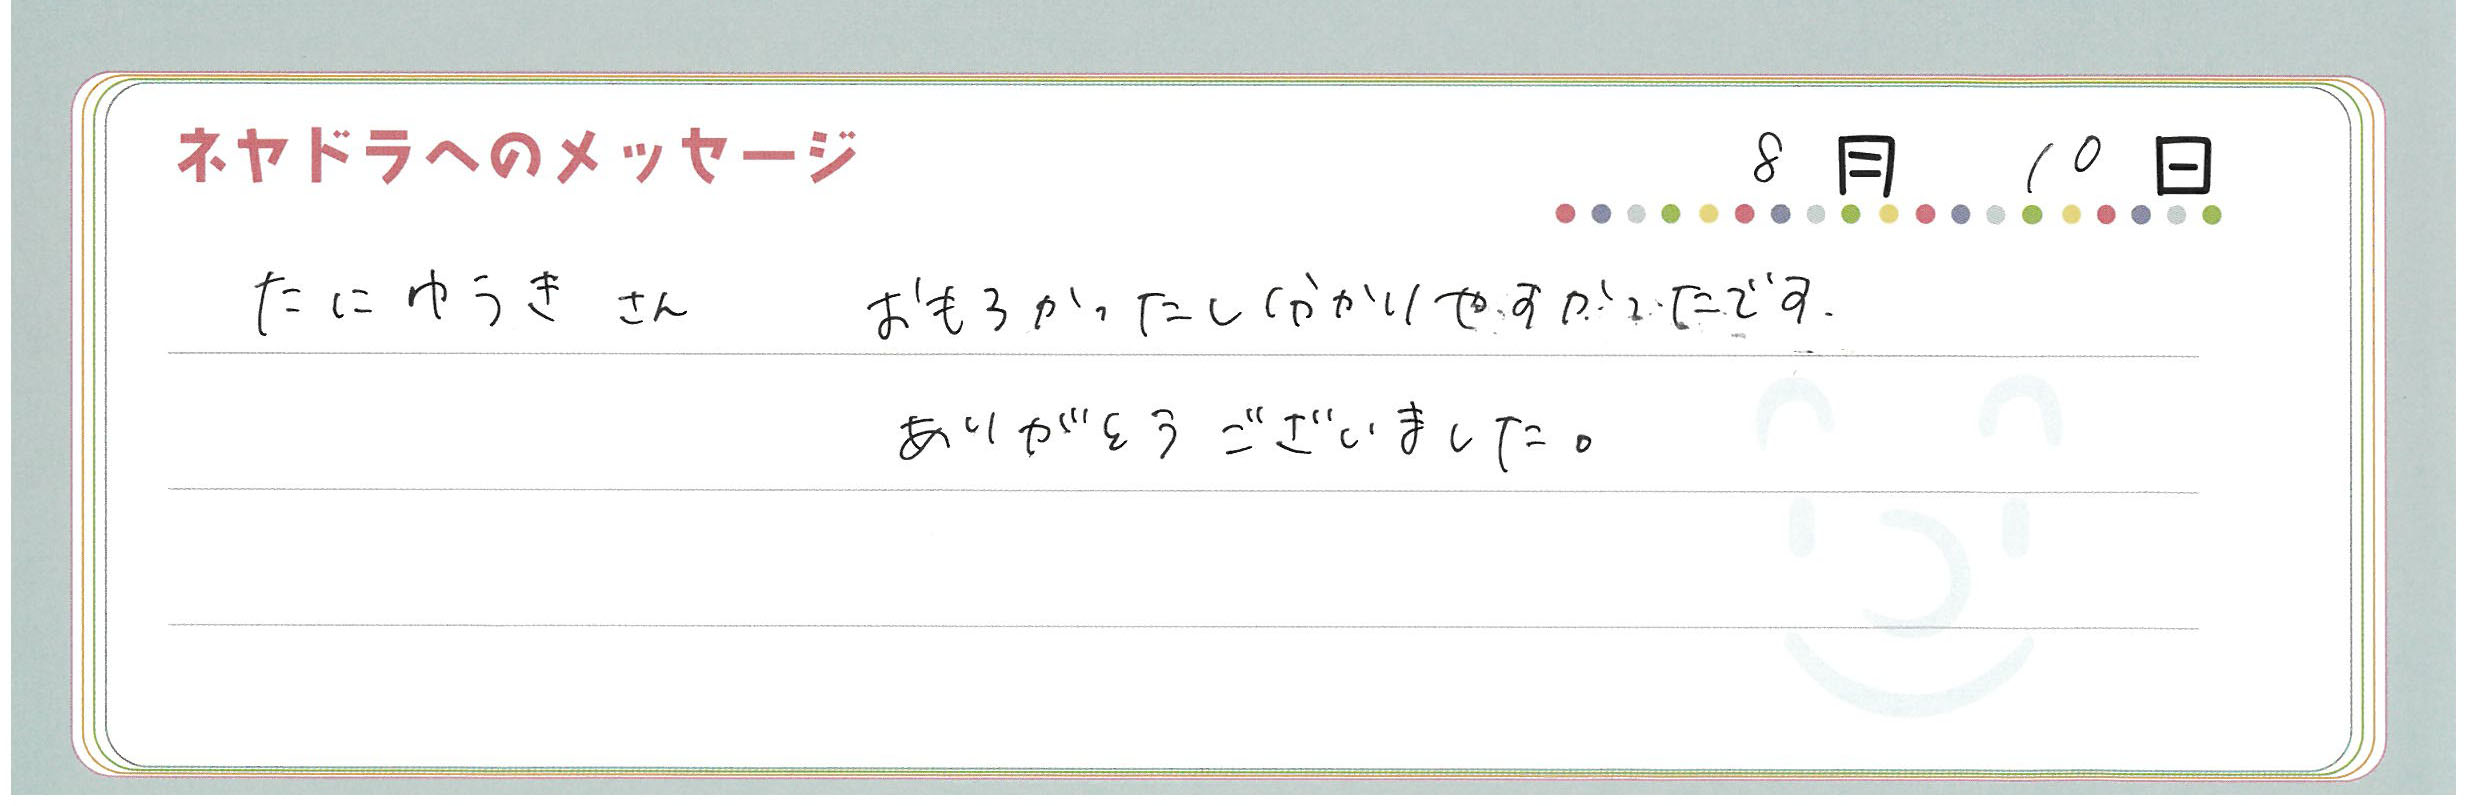 ネヤドラへのメッセージ
8月 10日
たにゆうき さん おもろかったし分かりやすかったです.
ありがとうございました。